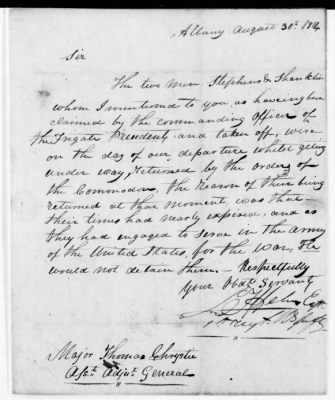 Albany August 30th 1814
Sir
The two men Stephens & Shanklin
whom I mentioned to you, as having been
claimed by the commanding Officer of
the Frigate President, and taken off, were
on the day of our departure whilst geting
under way, returned by the order of
the Commodore, the Reason of their being
returned at that moment, was that
their times had nearly expired, and as
they had engaged to serve in the army
of the United States, for the war, He
would not detain them. — Respectfully
Your Obdt. Servant
Capt
Major Thomas Chrystie
Asst. Adjt. General